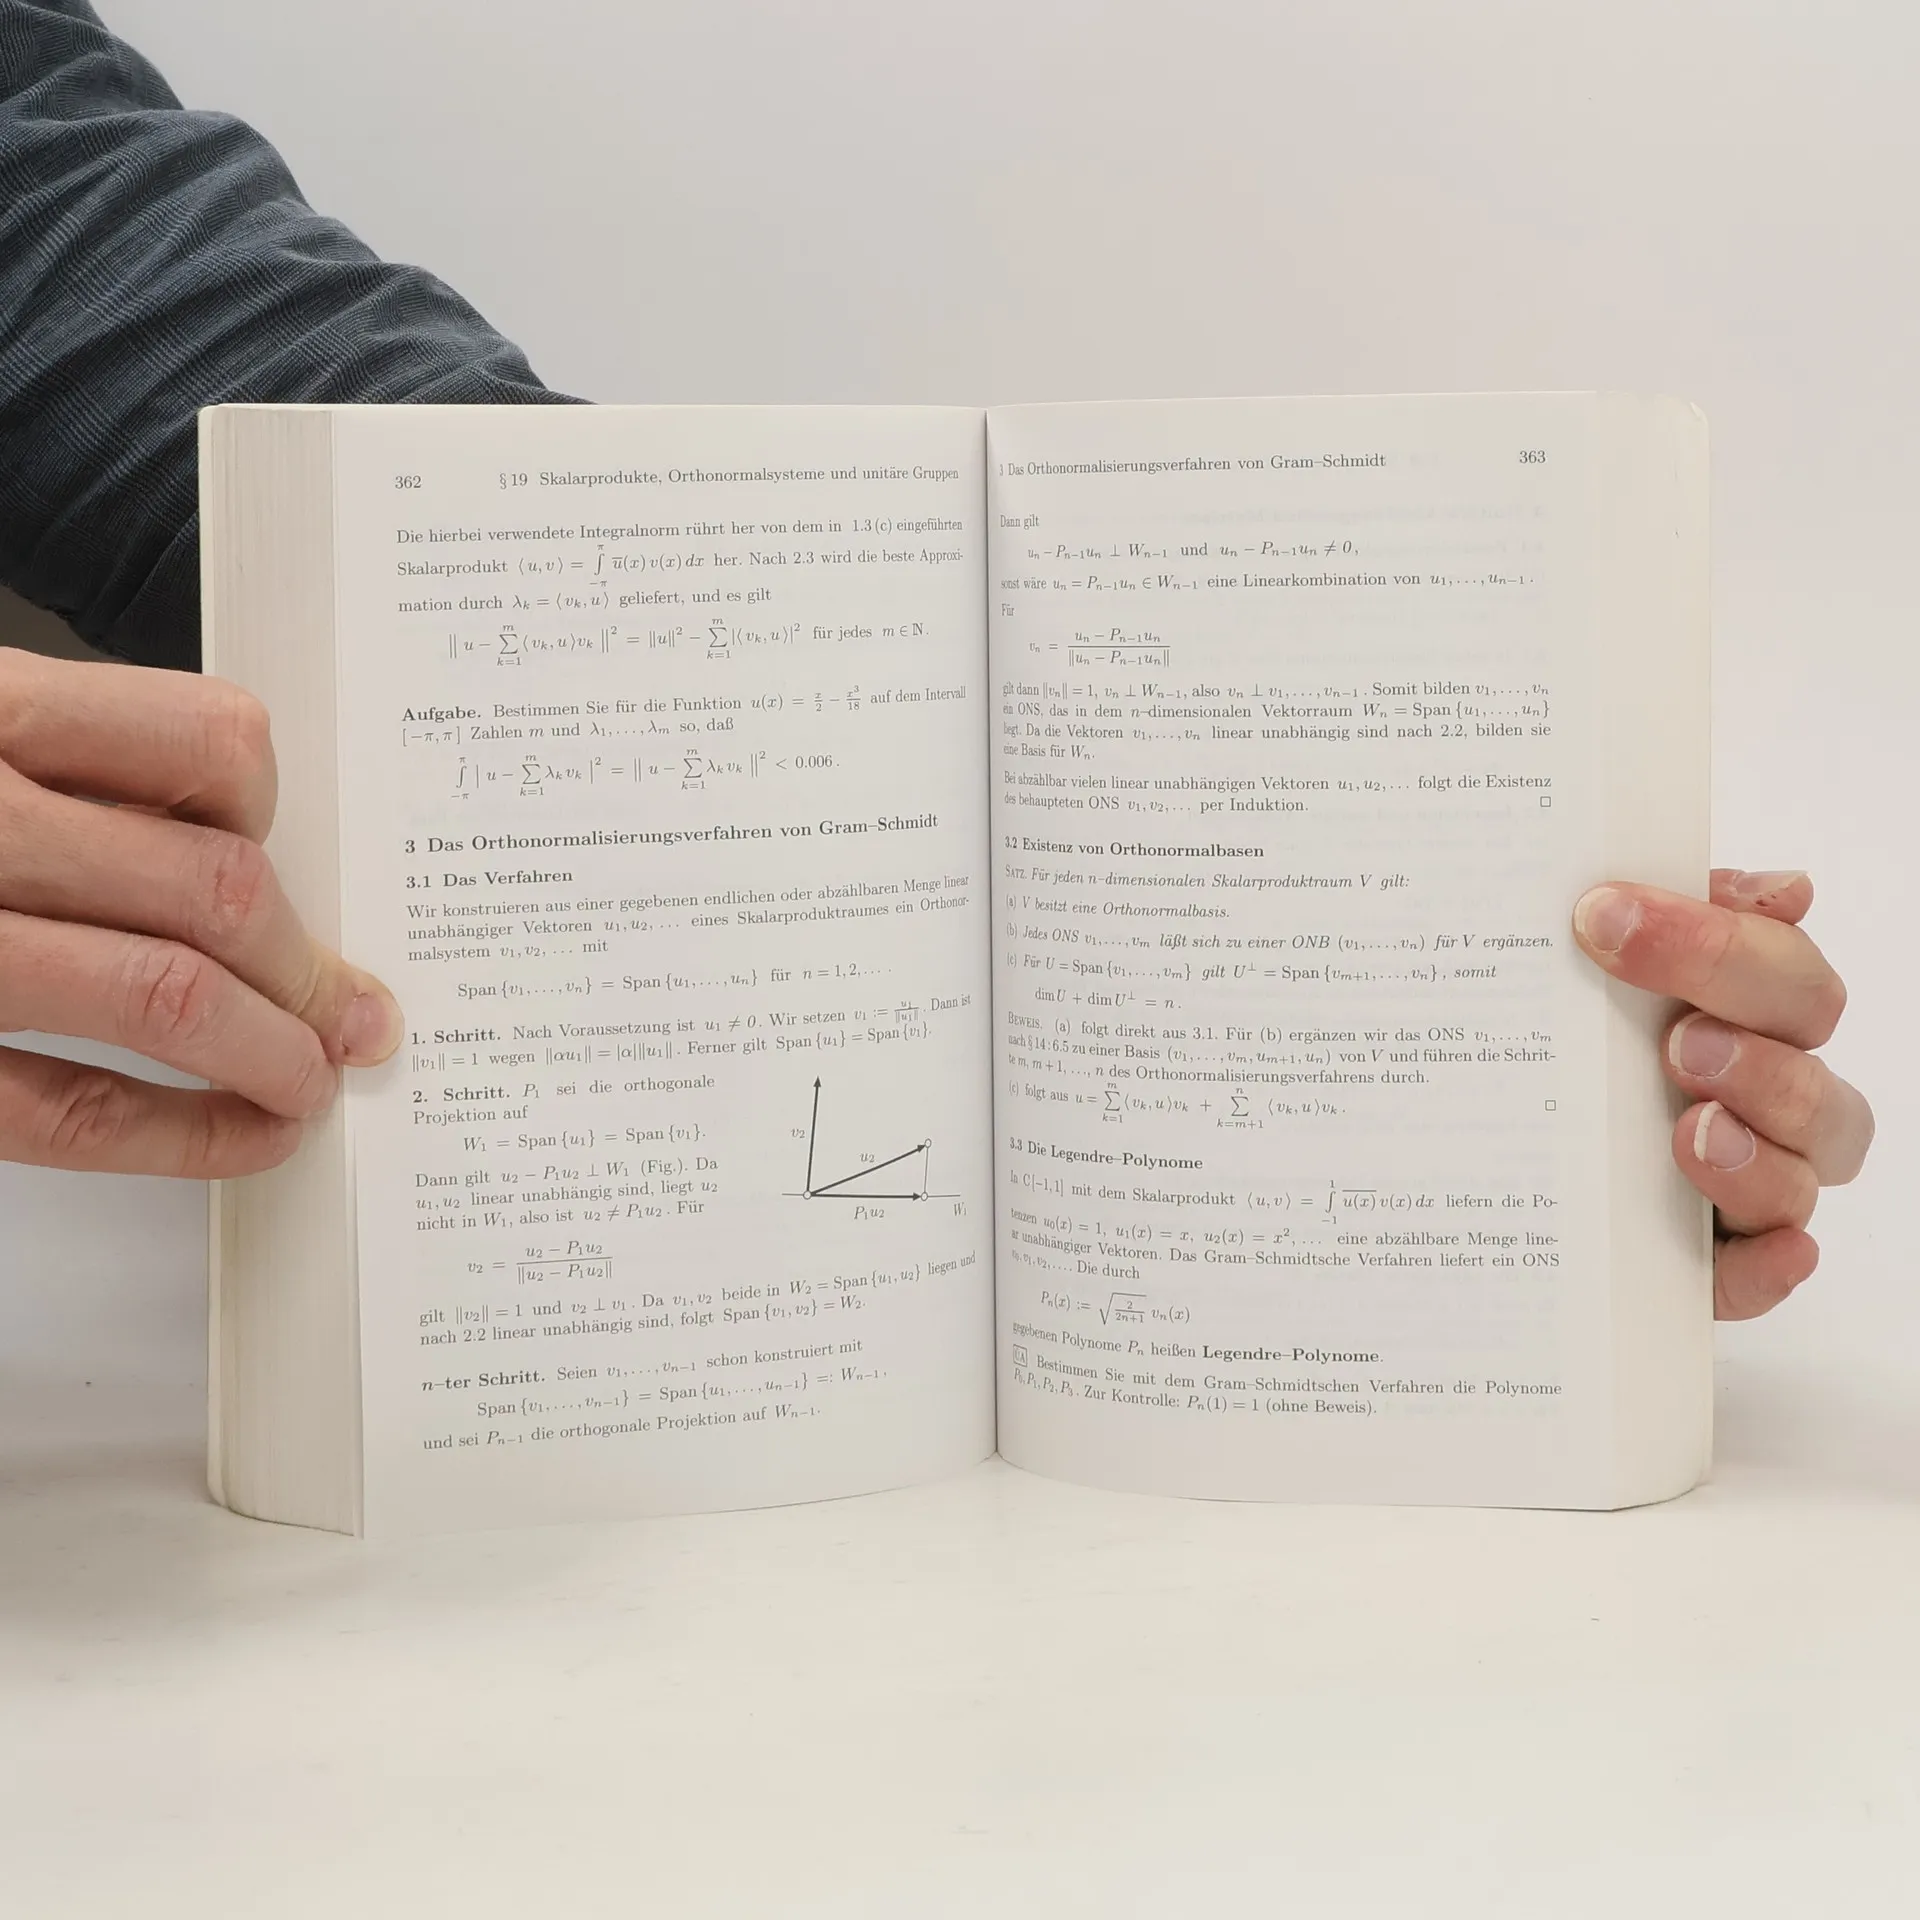 362 § 19 Skalarprodukte, Orthonormalsysteme und unitäre Gruppen
Die hierbei verwendete Integralnorm rührt her von dem in 1.3 (c) eingeführten
Skalarprodukt ⟨u, v⟩ = ∫_{−π}^{π} u̅(x) v(x) dx her. Nach 2.3 wird die beste Approxi-
mation durch λ_k = ⟨v_k, u⟩ geliefert, und es gilt
‖ u − ∑_{k=1}^{m} ⟨v_k, u⟩v_k ‖² = ‖u‖² − ∑_{k=1}^{m} |⟨v_k, u⟩|² für jedes m ∈ ℕ.
Aufgabe. Bestimmen Sie für die Funktion u(x) = x/2 − x³/18 auf dem Intervall
[−π, π] Zahlen m und λ₁, …, λ_m so, daß
∫_{−π}^{π} | u − ∑_{k=1}^{m} λ_k v_k |² = ‖ u − ∑_{k=1}^{m} λ_k v_k ‖² < 0.006.
3 Das Orthonormalisierungsverfahren von Gram–Schmidt
3.1 Das Verfahren
Wir konstruieren aus einer gegebenen endlichen oder abzählbaren Menge linear
unabhängiger Vektoren u₁, u₂, … eines Skalarproduktraumes ein Orthonor-
malsystem v₁, v₂, … mit
Span {v₁, …, v_n} = Span {u₁, …, u_n} für n = 1, 2, … .
1. Schritt. Nach Voraussetzung ist u₁ ≠ 0. Wir setzen v₁ := u₁/‖u₁‖. Dann ist
‖v₁‖ = 1 wegen ‖αu₁‖ = |α|‖u₁‖. Ferner gilt Span {u₁} = Span {v₁}.
2. Schritt. P₁ sei die orthogonale
Projektion auf
W₁ = Span {u₁} = Span {v₁}.
Dann gilt u₂ − P₁u₂ ⊥ W₁ (Fig.). Da
u₁, u₂ linear unabhängig sind, liegt u₂
nicht in W₁, also ist u₂ ≠ P₁u₂. Für
v₂ = (u₂ − P₁u₂) / ‖u₂ − P₁u₂‖
v₂
u₂
P₁u₂ W₁
gilt ‖v₂‖ = 1 und v₂ ⊥ v₁. Da v₁, v₂ beide in W₂ = Span {u₁, u₂} liegen und
nach 2.2 linear unabhängig sind, folgt Span {v₁, v₂} = W₂.
n–ter Schritt. Seien v₁, …, v_{n−1} schon konstruiert mit
Span {v₁, …, v_{n−1}} = Span {u₁, …, u_{n−1}} =: W_{n−1},
und sei P_{n−1} die orthogonale Projektion auf W_{n−1}.
3 Das Orthonormalisierungsverfahren von Gram–Schmidt 363
Dann gilt
u_n − P_{n−1}u_n ⊥ W_{n−1} und u_n − P_{n−1}u_n ≠ 0,
sonst wäre u_n = P_{n−1}u_n ∈ W_{n−1} eine Linearkombination von u₁, …, u_{n−1}.
Für
v_n = (u_n − P_{n−1}u_n) / ‖u_n − P_{n−1}u_n‖
gilt dann ‖v_n‖ = 1, v_n ⊥ W_{n−1}, also v_n ⊥ v₁, …, v_{n−1}. Somit bilden v₁, …, v_n
ein ONS, das in dem n–dimensionalen Vektorraum W_n = Span {u₁, …, u_n}
liegt. Da die Vektoren v₁, …, v_n linear unabhängig sind nach 2.2, bilden sie
eine Basis für W_n.
Bei abzählbar vielen linear unabhängigen Vektoren u₁, u₂, … folgt die Existenz
des behaupteten ONS v₁, v₂, … per Induktion. □
3.2 Existenz von Orthonormalbasen
SATZ. Für jeden n–dimensionalen Skalarproduktraum V gilt:
(a) V besitzt eine Orthonormalbasis.
(b) Jedes ONS v₁, …, v_m läßt sich zu einer ONB (v₁, …, v_n) für V ergänzen.
(c) Für U = Span {v₁, …, v_m} gilt U^⊥ = Span {v_{m+1}, …, v_n}, somit
dim U + dim U^⊥ = n.
BEWEIS. (a) folgt direkt aus 3.1. Für (b) ergänzen wir das ONS v₁, …, v_m
nach § 14 : 6.5 zu einer Basis (v₁, …, v_m, u_{m+1}, u_n) von V und führen die Schrit-
te m, m + 1, …, n des Orthonormalisierungsverfahrens durch.
(c) folgt aus u = ∑_{k=1}^{m} ⟨v_k, u⟩v_k + ∑_{k=m+1}^{n} ⟨v_k, u⟩v_k. □
3.3 Die Legendre–Polynome
In C[−1, 1] mit dem Skalarprodukt ⟨u, v⟩ = ∫_{−1}^{1} u̅(̅x̅)̅ v(x) dx liefern die Po-
tenzen u₀(x) = 1, u₁(x) = x, u₂(x) = x², … eine abzählbare Menge line-
ar unabhängiger Vektoren. Das Gram–Schmidtsche Verfahren liefert ein ONS
v₀, v₁, v₂, … . Die durch
P_n(x) := √(2/(2n+1)) v_n(x)
gegebenen Polynome P_n heißen Legendre–Polynome.
ÜA Bestimmen Sie mit dem Gram–Schmidtschen Verfahren die Polynome
P₀, P₁, P₂, P₃. Zur Kontrolle: P_n(1) = 1 (ohne Beweis).